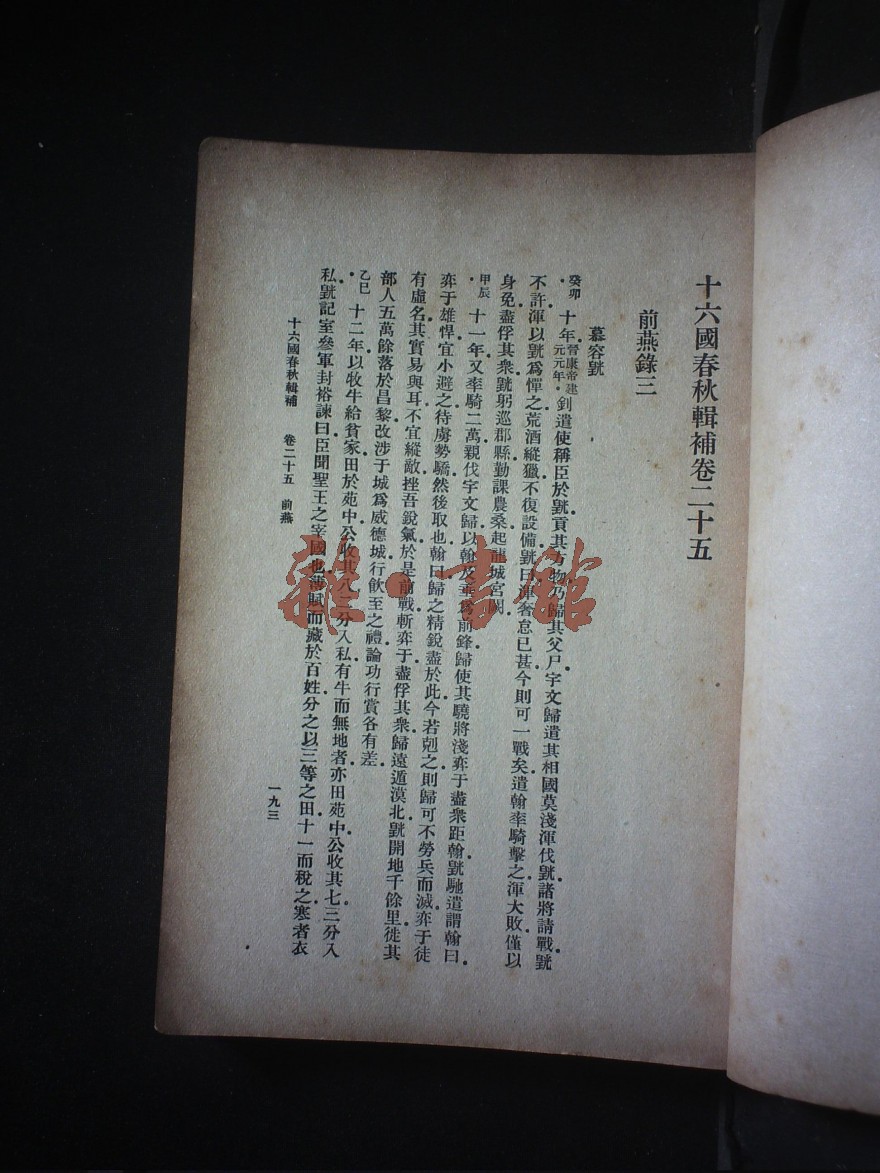 十六國春秋輯補卷二十五
前燕錄三
慕容皝
癸卯 十年晉康帝建元元年釗遣使稱臣於皝貢其方物乃歸其父尸宇文歸遣其相國莫淺渾伐皝諸將請戰皝
不許渾以皝爲憚之荒酒縱獵不復設備皝曰渾奢怠已甚今則可一戰矣遣翰率騎擊之渾大敗僅以
身免盡俘其衆皝躬巡郡縣勸課農桑起龍城宮闕
甲辰 十一年又率騎二萬親伐宇文歸以翰及垂爲前鋒歸使其驍將淺弈于盡衆距翰皝馳遣謂翰曰
弈于雄悍宜小避之待虜勢驕然後取也翰曰歸之精銳盡於此今若剋之則歸可不勞兵而滅弈于徒
有虛名其實易與耳不宜縱敵挫吾銳氣於是前戰斬弈于盡俘其衆歸遠遁漠北皝開地千餘里徙其
部人五萬餘落於昌黎改涉于城爲威德城行飲至之禮論功行賞各有差
乙巳 十二年以牧牛給貧家田於苑中公收其八二分入私有牛而無地者亦田苑中公收其七三分入
私皝記室參軍封裕諫曰臣聞聖王之宰國也薄賦而藏於百姓分之以三等之田十一而稅之寒者衣
十六國春秋輯補 卷二十五 前燕
一九三
雜·書館